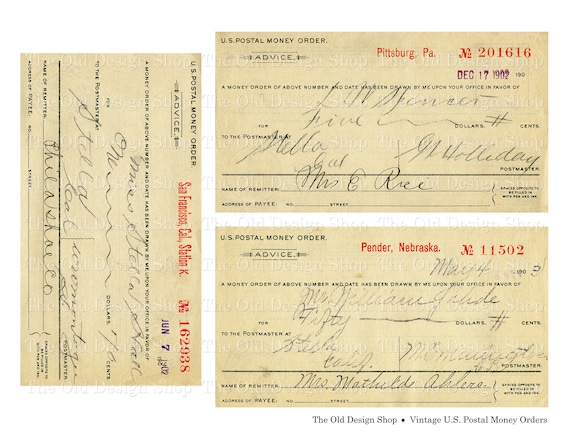 U.S. POSTAL MONEY ORDER.
ADVICE.
A MONEY ORDER OF ABOVE NUMBER AND DATE HAS BEEN DRAWN BY ME UPON YOUR OFFICE IN FAVOR OF
Miss Stella Hall
FOR
DOLLARS, CENTS.
TO THE POSTMASTER AT
Stella
Cal
POSTMASTER.
NAME OF REMITTER:
ADDRESS OF PAYEE: NO. STREET.
SPACES OPPOSITE TO BE FILLED IN WITH PEN AND INK.
San Francisco, Cal., Station K. № 162938
JUN 7 1902
U.S. POSTAL MONEY ORDER.
ADVICE.
Pittsburg, Pa. № 201616
DEC 17 1902 190
A MONEY ORDER OF ABOVE NUMBER AND DATE HAS BEEN DRAWN BY ME UPON YOUR OFFICE IN FAVOR OF
Spencer
FOR Five DOLLARS, CENTS.
TO THE POSTMASTER AT
Stella
Cal
Holliday
POSTMASTER.
NAME OF REMITTER: Mrs E Rice
ADDRESS OF PAYEE: NO. STREET.
SPACES OPPOSITE TO BE FILLED IN WITH PEN AND INK.
U.S. POSTAL MONEY ORDER.
ADVICE.
Pender, Nebraska. № 11502
May 4 190 3
A MONEY ORDER OF ABOVE NUMBER AND DATE HAS BEEN DRAWN BY ME UPON YOUR OFFICE IN FAVOR OF
Mrs William
FOR Fifty DOLLARS, CENTS.
TO THE POSTMASTER AT
Stella
Calif
POSTMASTER.
NAME OF REMITTER: Mrs. Mathilde Ahlers
ADDRESS OF PAYEE: NO. STREET.
SPACES OPPOSITE TO BE FILLED IN WITH PEN AND INK.
The Old Design Shop • Vintage U.S. Postal Money Orders